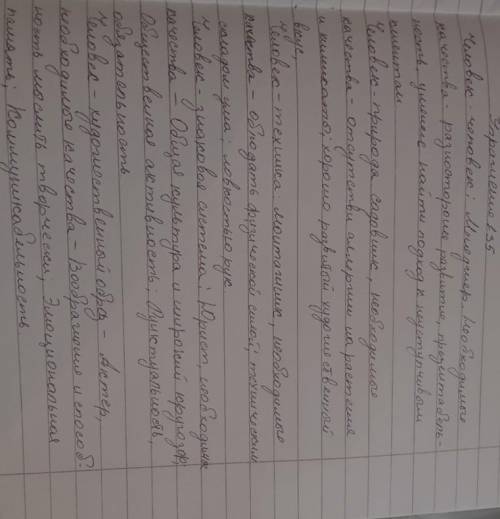 Упражнение 135
Человек-человек; Менеджер. Необходимые
качества: разносторонне развитие, презентабель-
ность, умение найти подход к неуступчивым
клиентам
Человек-природа садовник, необходимые
качества - отсутствии аллергии на растения
и химикаты; хорошо развитый художественный
вкус.
Человек-техника монтажник, необходимые
качества - обладать физической силой, техническим
складом ума; ловкостью рук
Человек - знаковые системы: Юрист, необходимые
качества - Общая культура и широкий кругозор;
Общественная активность: Пунктуальность,
общательность
Человек - художественный образ - Актер,
необходимого качества - Воображение и способ-
ность мыслить творчески; Эмоциональная
память; Коммуникабельность.